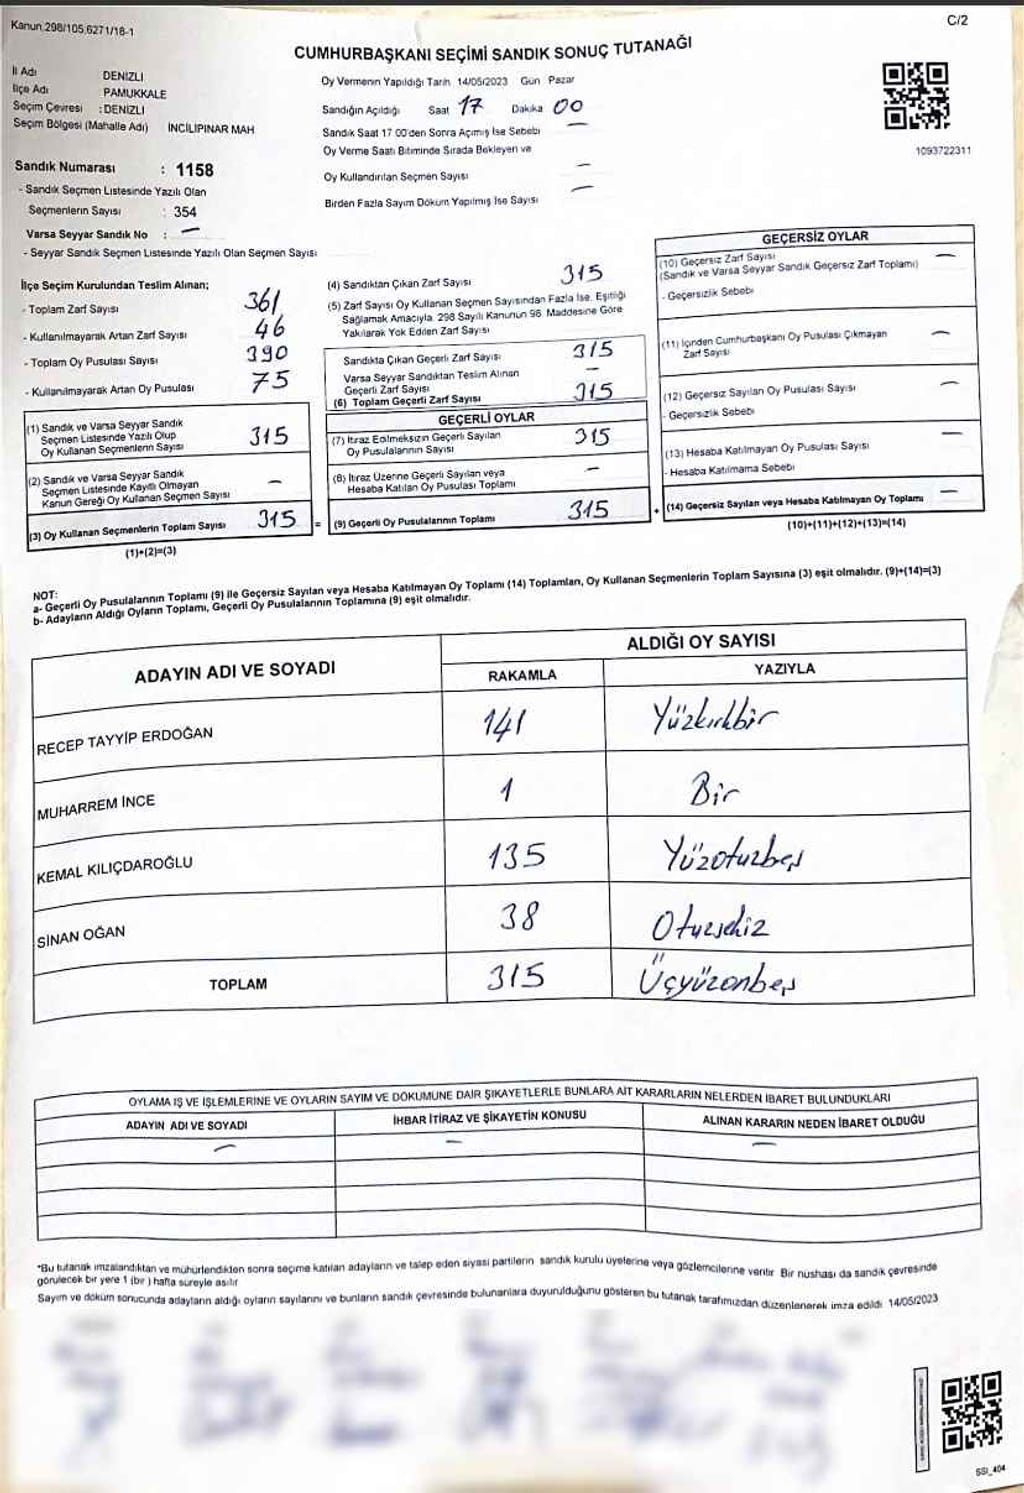 Kanun.298/105,6271/18-1
C/2
CUMHURBAŞKANI SEÇİMİ SANDIK SONUÇ TUTANAĞI
İl Adı DENİZLİ
İlçe Adı PAMUKKALE
Seçim Çevresi : DENİZLİ
Seçim Bölgesi (Mahalle Adı) İNCİLİPINAR MAH
Sandık Numarası : 1158
- Sandık Seçmen Listesinde Yazılı Olan
Seçmenlerin Sayısı : 354
Varsa Seyyar Sandık No : —
- Seyyar Sandık Seçmen Listesinde Yazılı Olan Seçmen Sayısı
Oy Vermenin Yapıldığı Tarih 14/05/2023 Gün Pazar
Sandığın Açıldığı Saat 17 Dakika 00
Sandık Saat 17 00'den Sonra Açımış İse Sebebi —
Oy Verme Saati Bitiminde Sırada Bekleyen ve
Oy Kullandırılan Seçmen Sayısı —
Birden Fazla Sayım Döküm Yapılmış İse Sayısı —
1093722311
İlçe Seçim Kurulundan Teslim Alınan;
- Toplam Zarf Sayısı 361
- Kullanılmayarak Artan Zarf Sayısı 46
- Toplam Oy Pusulası Sayısı 390
- Kullanılmayarak Artan Oy Pusulası 75
(1) Sandık ve Varsa Seyyar Sandık
Seçmen Listesinde Yazılı Olup
Oy Kullanan Seçmenlerin Sayısı 315
(2) Sandık ve Varsa Seyyar Sandık
Seçmen Listesinde Kayıtlı Olmayan
Kanun Gereği Oy Kullanan Seçmen Sayısı —
(3) Oy Kullanan Seçmenlerin Toplam Sayısı 315 =
(1)+(2)=(3)
(4) Sandıktan Çıkan Zarf Sayısı 315
(5) Zarf Sayısı Oy Kullanan Seçmen Sayısından Fazla İse, Eşitliği
Sağlamak Amacıyla, 298 Sayılı Kanunun 98. Maddesine Göre
Yakılarak Yok Edilen Zarf Sayısı
Sandıkta Çıkan Geçerli Zarf Sayısı 315
Varsa Seyyar Sandıktan Teslim Alınan
Geçerli Zarf Sayısı —
(6) Toplam Geçerli Zarf Sayısı 315
GEÇERLİ OYLAR
(7) İtiraz Edilmeksizin Geçerli Sayılan
Oy Pusulalarının Sayısı 315
(8) İtiraz Üzerine Geçerli Sayılan veya
Hesaba Katılan Oy Pusulası Toplamı —
(9) Geçerli Oy Pusulalarının Toplamı 315 +
GEÇERSİZ OYLAR
(10) Geçersiz Zarf Sayısı —
(Sandık ve Varsa Seyyar Sandık Geçersiz Zarf Toplamı)
- Geçersizlik Sebebi
(11) İçinden Cumhurbaşkanı Oy Pusulası Çıkmayan
Zarf Sayısı —
(12) Geçersiz Sayılan Oy Pusulası Sayısı —
- Geçersizlik Sebebi
(13) Hesaba Katılmayan Oy Pusulası Sayısı —
- Hesaba Katılmama Sebebi
(14) Geçersiz Sayılan veya Hesaba Katılmayan Oy Toplamı —
(10)+(11)+(12)+(13)=(14)
NOT:
a- Geçerli Oy Pusulalarının Toplamı (9) ile Geçersiz Sayılan veya Hesaba Katılmayan Oy Toplamı (14) Toplamları, Oy Kullanan Seçmenlerin Toplam Sayısına (3) eşit olmalıdır. (9)+(14)=(3)
b- Adayların Aldığı Oyların Toplamı, Geçerli Oy Pusulalarının Toplamına (9) eşit olmalıdır.
ADAYIN ADI VE SOYADI ALDIĞI OY SAYISI
RAKAMLA YAZIYLA
RECEP TAYYİP ERDOĞAN 141 Yüzkırkbir
MUHARREM İNCE 1 Bir
KEMAL KILIÇDAROĞLU 135 Yüzotuzbeş
SİNAN OĞAN 38 Otuzsekiz
TOPLAM 315 Üçyüzonbeş
OYLAMA İŞ VE İŞLEMLERİNE VE OYLARIN SAYIM VE DÖKÜMÜNE DAİR ŞİKAYETLERLE BUNLARA AİT KARARLARIN NELERDEN İBARET BULUNDUKLARI
ADAYIN ADI VE SOYADI İHBAR İTİRAZ VE ŞİKAYETİN KONUSU ALINAN KARARIN NEDEN İBARET OLDUĞU
— — —
*Bu tutanak imzalandıktan ve mühürlendikten sonra seçime katılan adayların ve talep eden siyasi partilerin sandık kurulu üyelerine veya gözlemcilerine verilir Bir nüshası da sandık çevresinde
görülecek bir yere 1 (bir) hafta süreyle asılır
Sayım ve döküm sonucunda adayların aldığı oyların sayılarını ve bunların sandık çevresinde bulunanlara duyurulduğunu gösteren bu tutanak tarafımızdan düzenlenerek imza edildi 14/05/2023
SSI_404